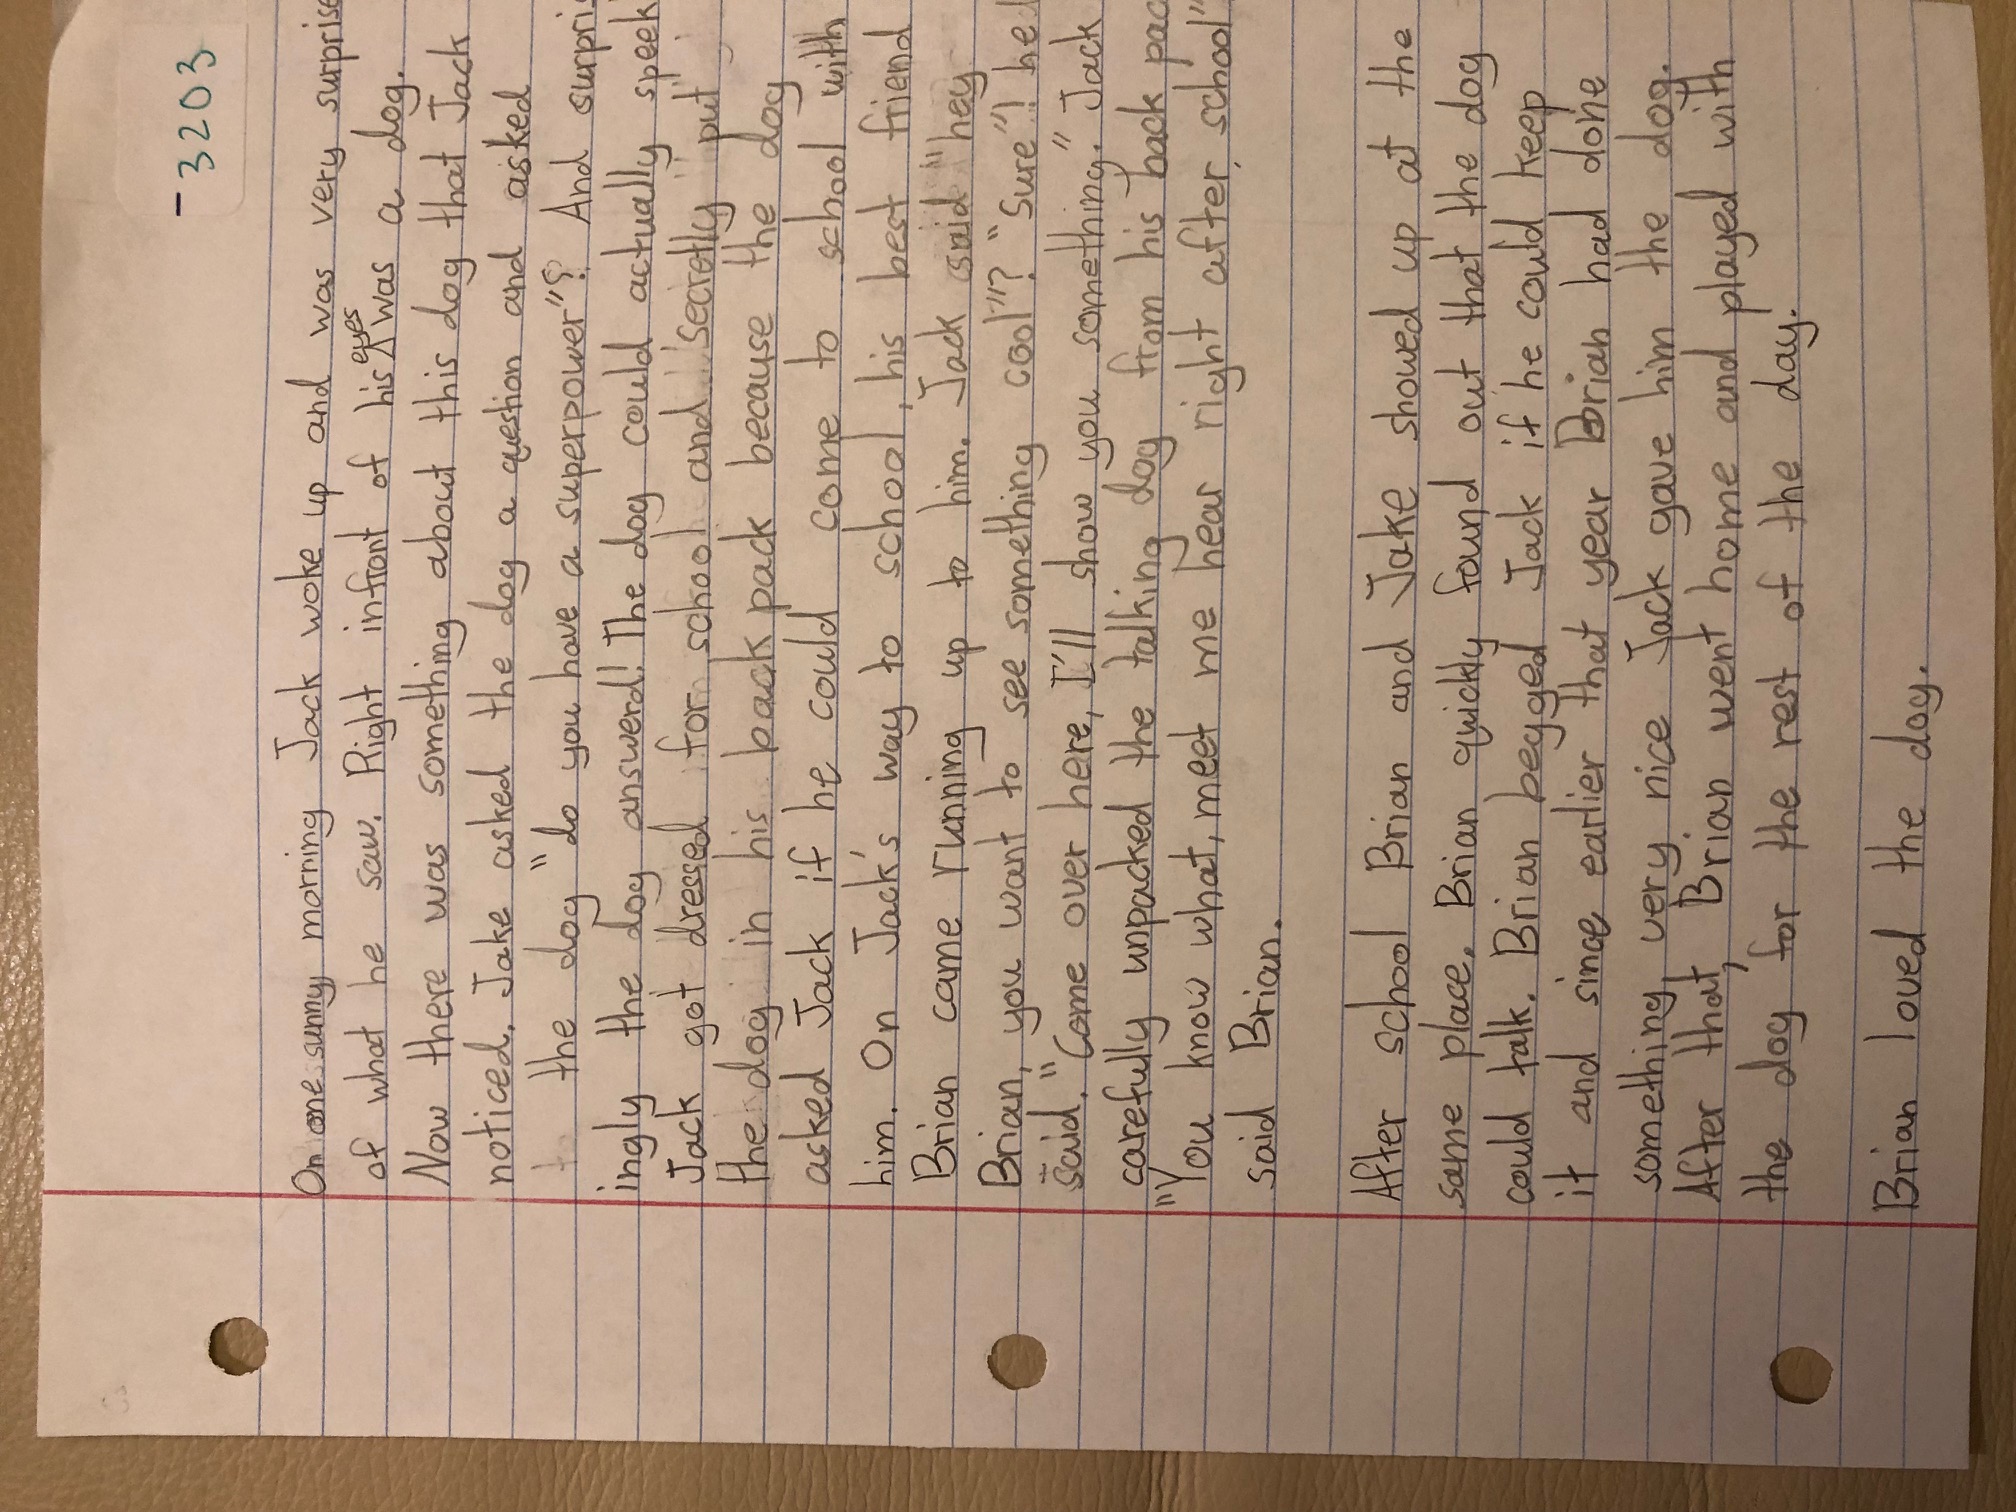 -3203
On one sunny, morning Jack woke up and was very surprise
of what he saw. Right infront of his eyes was a dog.
Now there was something about this dog that Jack
noticed. Jake asked the dog a question and asked
to the dog "do you have a superpower"? And surpris
ingly the dog answerd! The dog could actually speek
Jack got dressed for school and secretly put
the dog in his back pack because the dog
asked Jack if he could come to school with
him. On Jack's way to school, his best friend
Brian came running up to him. Jack said "hey
Brian, you want to see something cool"? "Sure"! he
said. "Come over here, I'll show you something." Jack
carefully unpacked the talking dog from his back pac
"You know what, meet me hear right after school"
said Brian.
After school Brian and Jake showed up at the
same place. Brian quickly found out that the dog
could talk. Brian begged Jack if he could keep
it and since earlier that year Brian had done
something, very nice Jack gave him the dog.
After that, Brian went home and played with
the dog for the rest of the day.
Brian loved the dog.